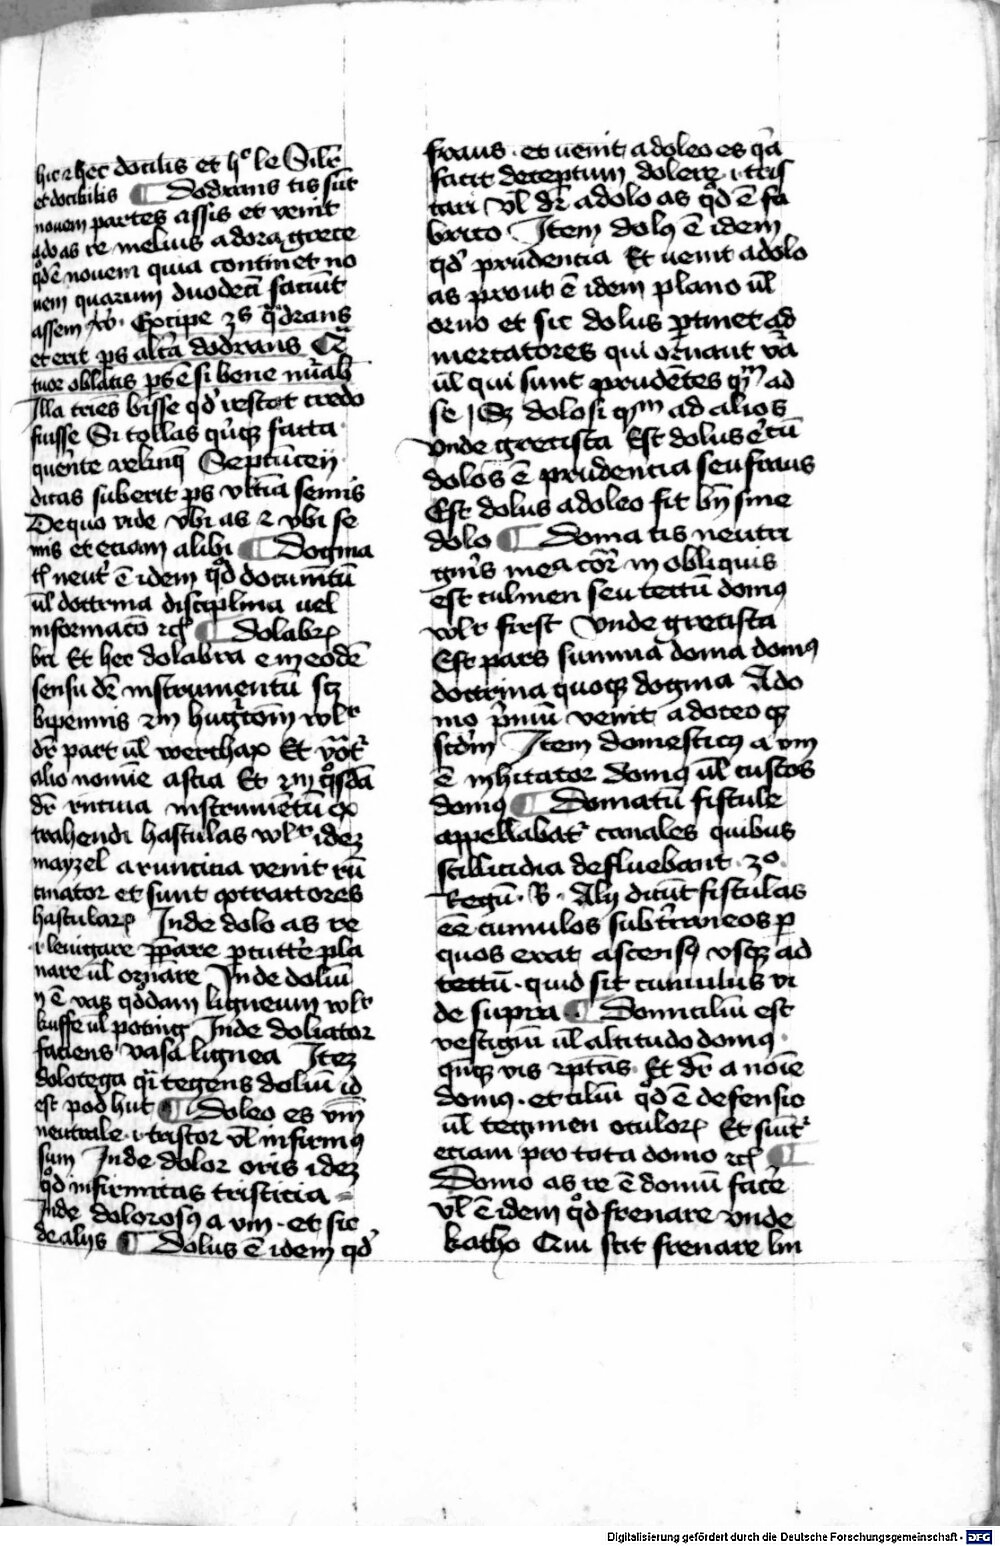 hic ⁊ hec docilis et hº le Silr̄
et docibilis ¶ Dodrans tis sūt
novem partes assis et venit
a do as re melius a dora grece
qd̄ ē novem quia continet no
vem quarum duodeci faciūt
assem Excipe qͣdrans
et erit ps altā dodrans
tuor oblatis ps ē si bene nūab
Illa tries bisse qd̛ restat credo
fuisse Si tollas facta
quēnte relinq̄ Septūcen
dicas suberit ps vltīa semis
De quo vide vbi as ⁊ vbi se
mis et eciam alibi ¶ Dogma
tꝭ neut͛ ē idem qd̄ documētū
ul̄ doctrina disciplina uel
informacō ⁊cꝭ ¶ Dolabꝝ
bri Et hec dolabra e in eodē
sensu dr̄ instrumentū scꝫ
bipennis wlr
dr̄ part ul̄ werchax Et
alio nomīe ascia Et
dr̄ rūcina instrumētū ex
trahendi hastulas wlr idez
mayzel a runcina venit rū
cinator et sunt ꝯtractores
hastulaꝝ Inde dolo as re
.i. levigare ꝑꝑare ꝑcutte pla
nare ul̄ ornare Inde doliū
ij ē vas qddam ligneum wlr
kuffe ul̄ poting Inde doliator
faciens vasa lignea Itez
dolotega qi̅ tegens doliū id
est pod hut ¶ Doleo es vm̄
neutrale .i. tristor ul̄ infirmꝰ
sum Inde dolor oris idez
qd̄ infirmitas tristicia =
Inde dolorosꝰ a vm .et sic
de alijs ¶ Dolus ē idem qd̛
fraus . et uenit a doleo es qͣa
facit deceptum dolere .i. tris
tari Vl̄ dr̄ a dolo as qd̄ ē fa
brico Item dolꝰ ē idem
qd̛ prudencia Et uenit a dolo
as prout ē idem plano ul̄
orno et sic dolus ꝑtinet ad
mercatores qui ornant
ul̄ qui sunt prudētes qͫ ad
se Sꝫ dolosi qͫ ad alios
Vnde grecista Est dolus
dolos ē prudencia seu fraus
Est dolus a doleo fit bn̄ sine
dolo ¶ Doma tis neutri
gn̄is mea cōr in obliquis
est culmen seu tectū domꝰ
wlr first Vnde grecista
Est pars summa doma domꝰ
doctrina quoqꝫ dogma A do
mo p̄mū venit a doceo qꝫ
scdm̄ Item domesticꝰ a vm
ē inhitator domꝰ ul̄ custos
domꝰ ¶ Domatū fistule
appellabat᷑ canales quibus
stillicidia defluebant . 2º
Regū . Alij dicūt fistulas
eē cumulos subt̄raneos ꝑ
quos erat ascensꝰ vsqꝫ ad
tectū . quid sit cumulus vi
de supra ¶ Domciliū est
vestigiū ul̄ altitudo domꝰ
Et dr̄ a noīe
domꝰ . et ciliū qd̄ ē defensio
ul̄ tegimen oculoꝝ Et sūit᷑
eciam pro tota domo ⁊cꝭ ¶
Domo as re ē domū face̅
Vl̄ ē idem qd̄ frenare Vnde
katho Qui scit frenare lin